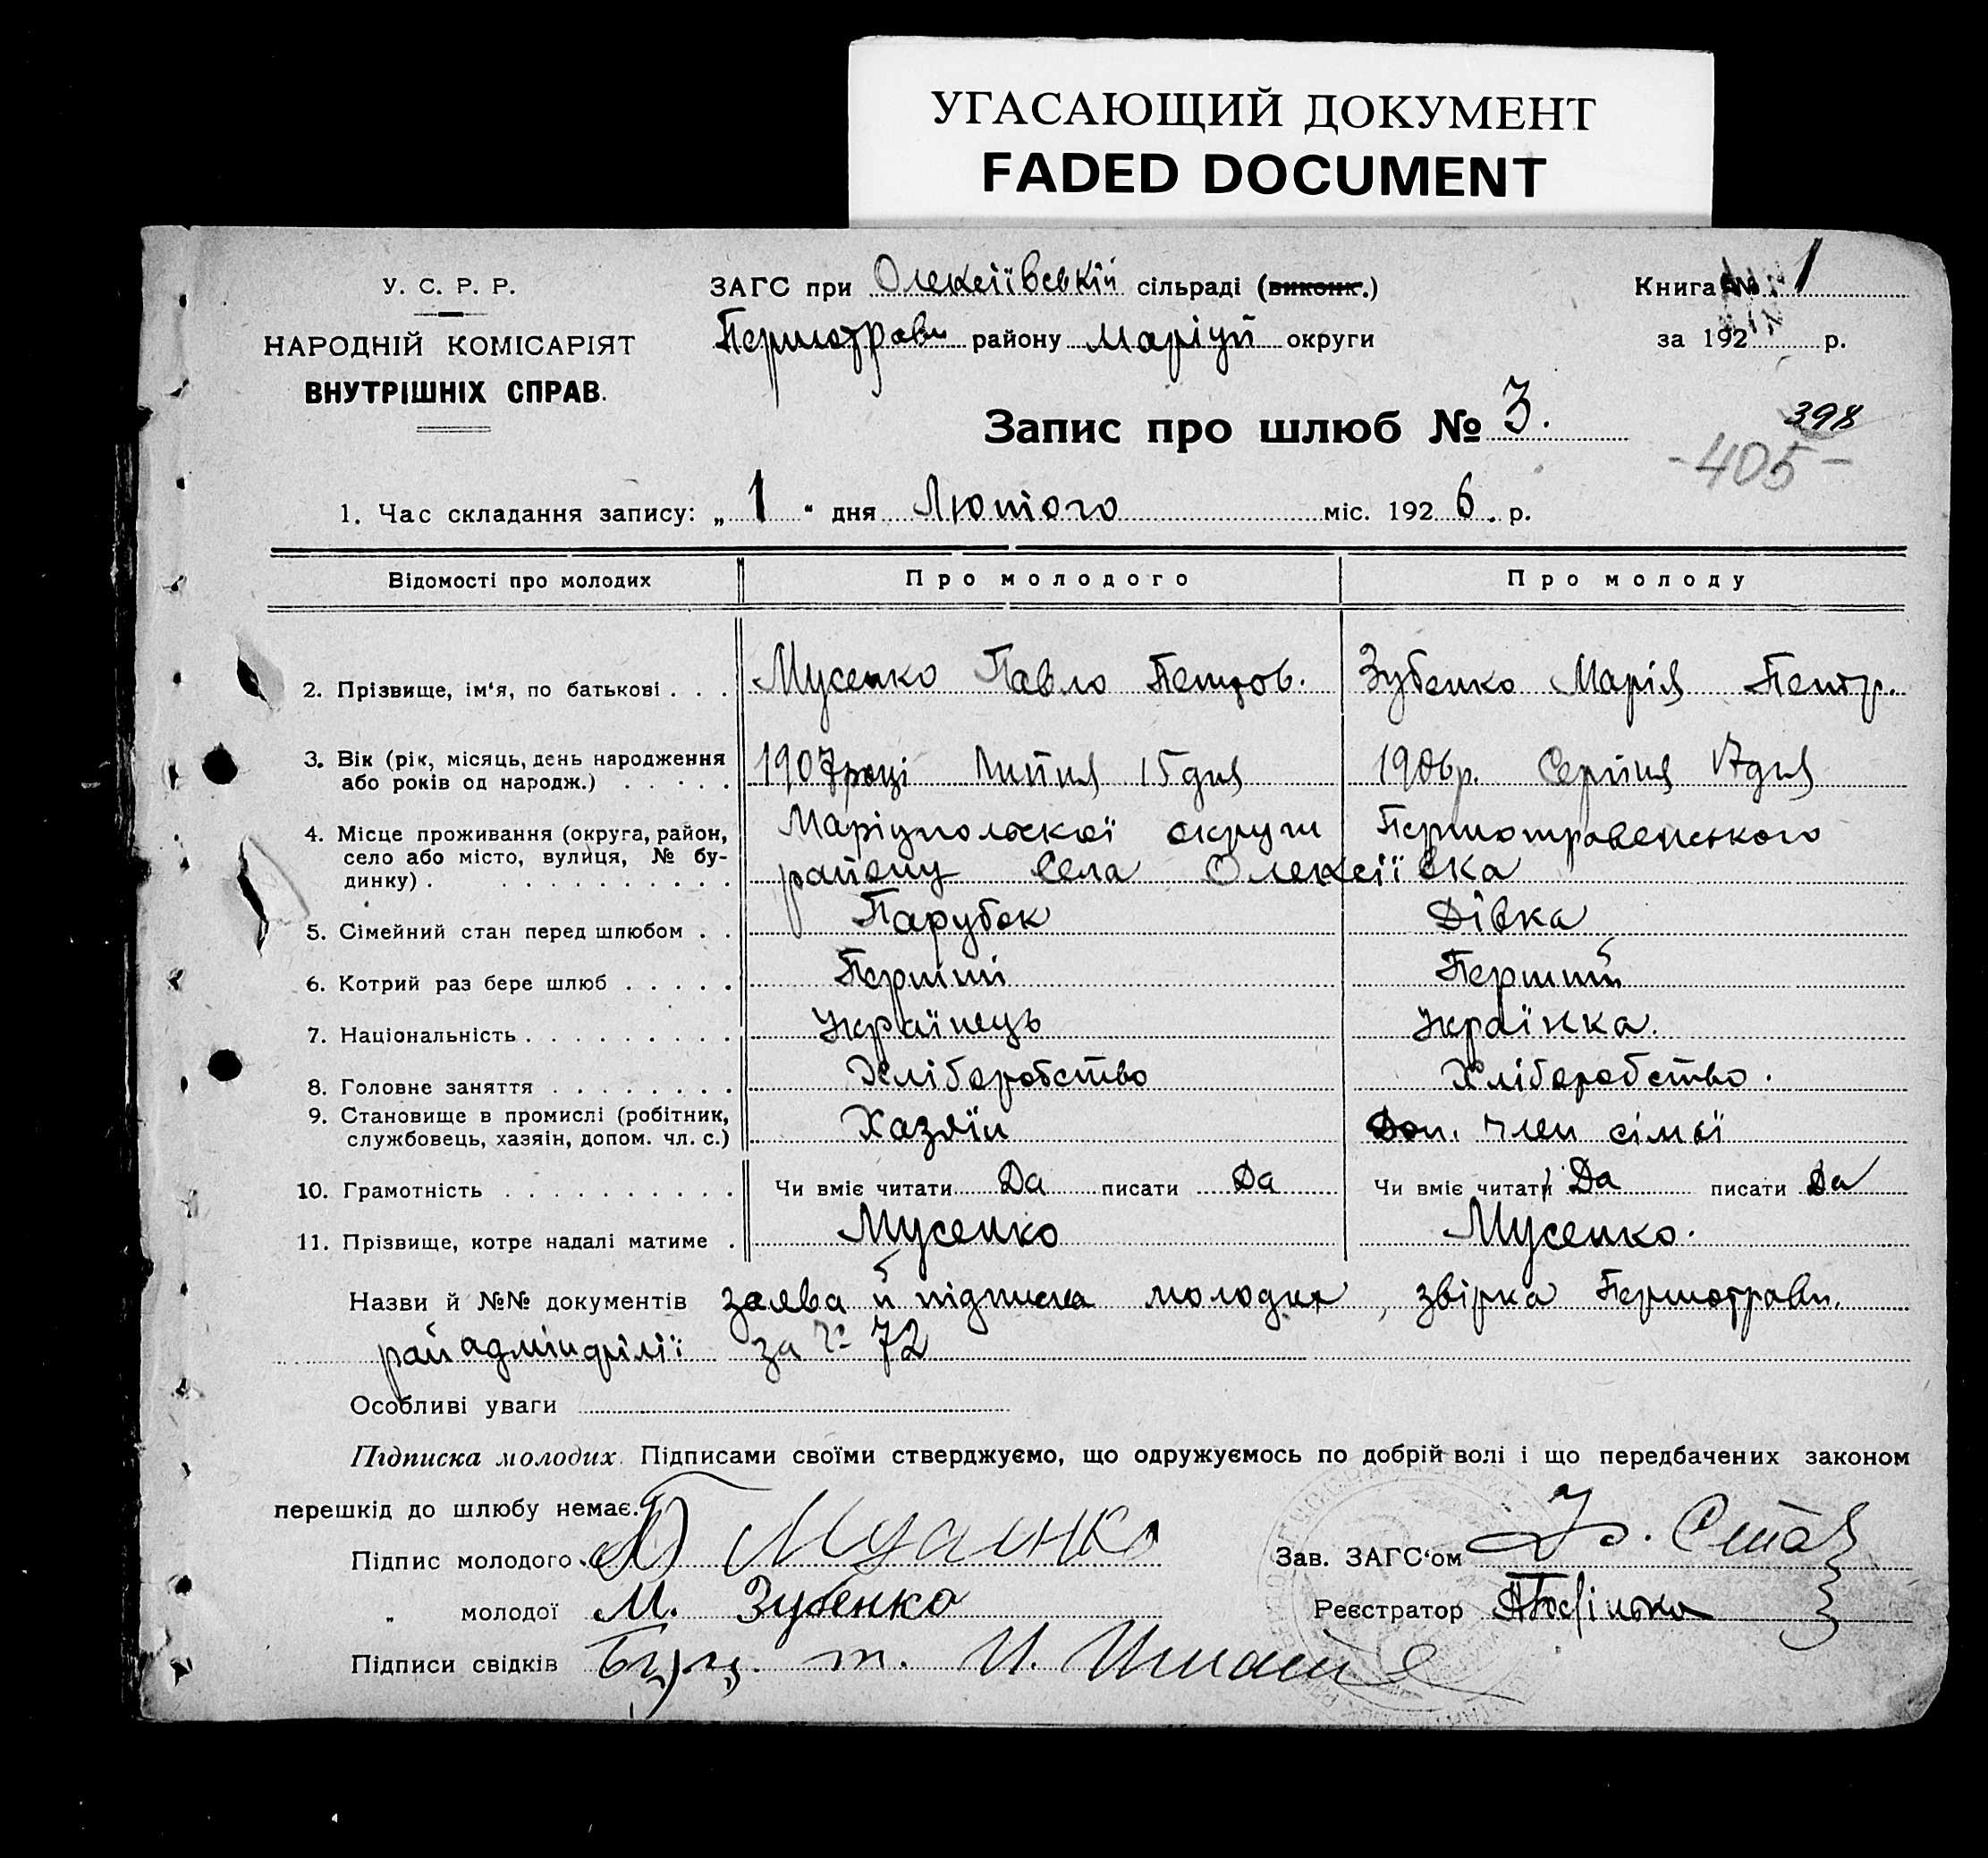 УГАСАЮЩИЙ ДОКУМЕНТ
FADED DOCUMENT
У. С. Р. Р.
НАРОДНІЙ КОМІСАРІЯТ
ВНУТРІШНІХ СПРАВ.
ЗАГС при Олексіївській сільраді (виконк.)
Першотравн району Маріуп округи
Книга № 1
за 192 р.
Запис про шлюб № 3.
398
-405-
1. Час складання запису: „ 1 “ дня Лютого міс. 1926. р.
Відомості про молодих Про молодого Про молоду
2. Прізвище, ім'я, по батькові . . . Мусенко Павло Петров. Зубенко Марія Петр.
3. Вік (рік, місяць, день народження
або років од народж.) . . . . . 1907 році Липня 15 дня 1906 р. Серпня 17 дня
4. Місце проживання (округа, район, Маріупольської округи Першотравенського
село або місто, вулиця, № бу-
динку) . . . . . . . . . . . району села Олексіївка
5. Сімейний стан перед шлюбом . . Парубок Дівка
6. Котрий раз бере шлюб . . . . . Перший Перший
7. Національність . . . . . . . . . Українець Українка.
8. Головне заняття . . . . . . . . Хліборобство Хліборобство.
9. Становище в промислі (робітник,
службовець, хазяін, допом. чл. с.) Хазяїн Доп. член сімьї
10. Грамотність . . . . . . . . . . Чи вміє читати Да писати Да Чи вміє читати Да писати Да
11. Прізвище, котре надалі матиме . Мусенко Мусенко.
Назви й №№ документів заява й підписка молодих, звірка Першотравн.
райадмінділії за № 72
Особливі уваги
Підписка молодих. Підписами своїми стверджуємо, що одружуємось по добрій волі і що передбачених законом
перешкід до шлюбу немає.
Підпис молодого П Мусенко Зав. ЗАГС'ом
„ молодої М. Зубенко Реєстратор
Підписи свідків